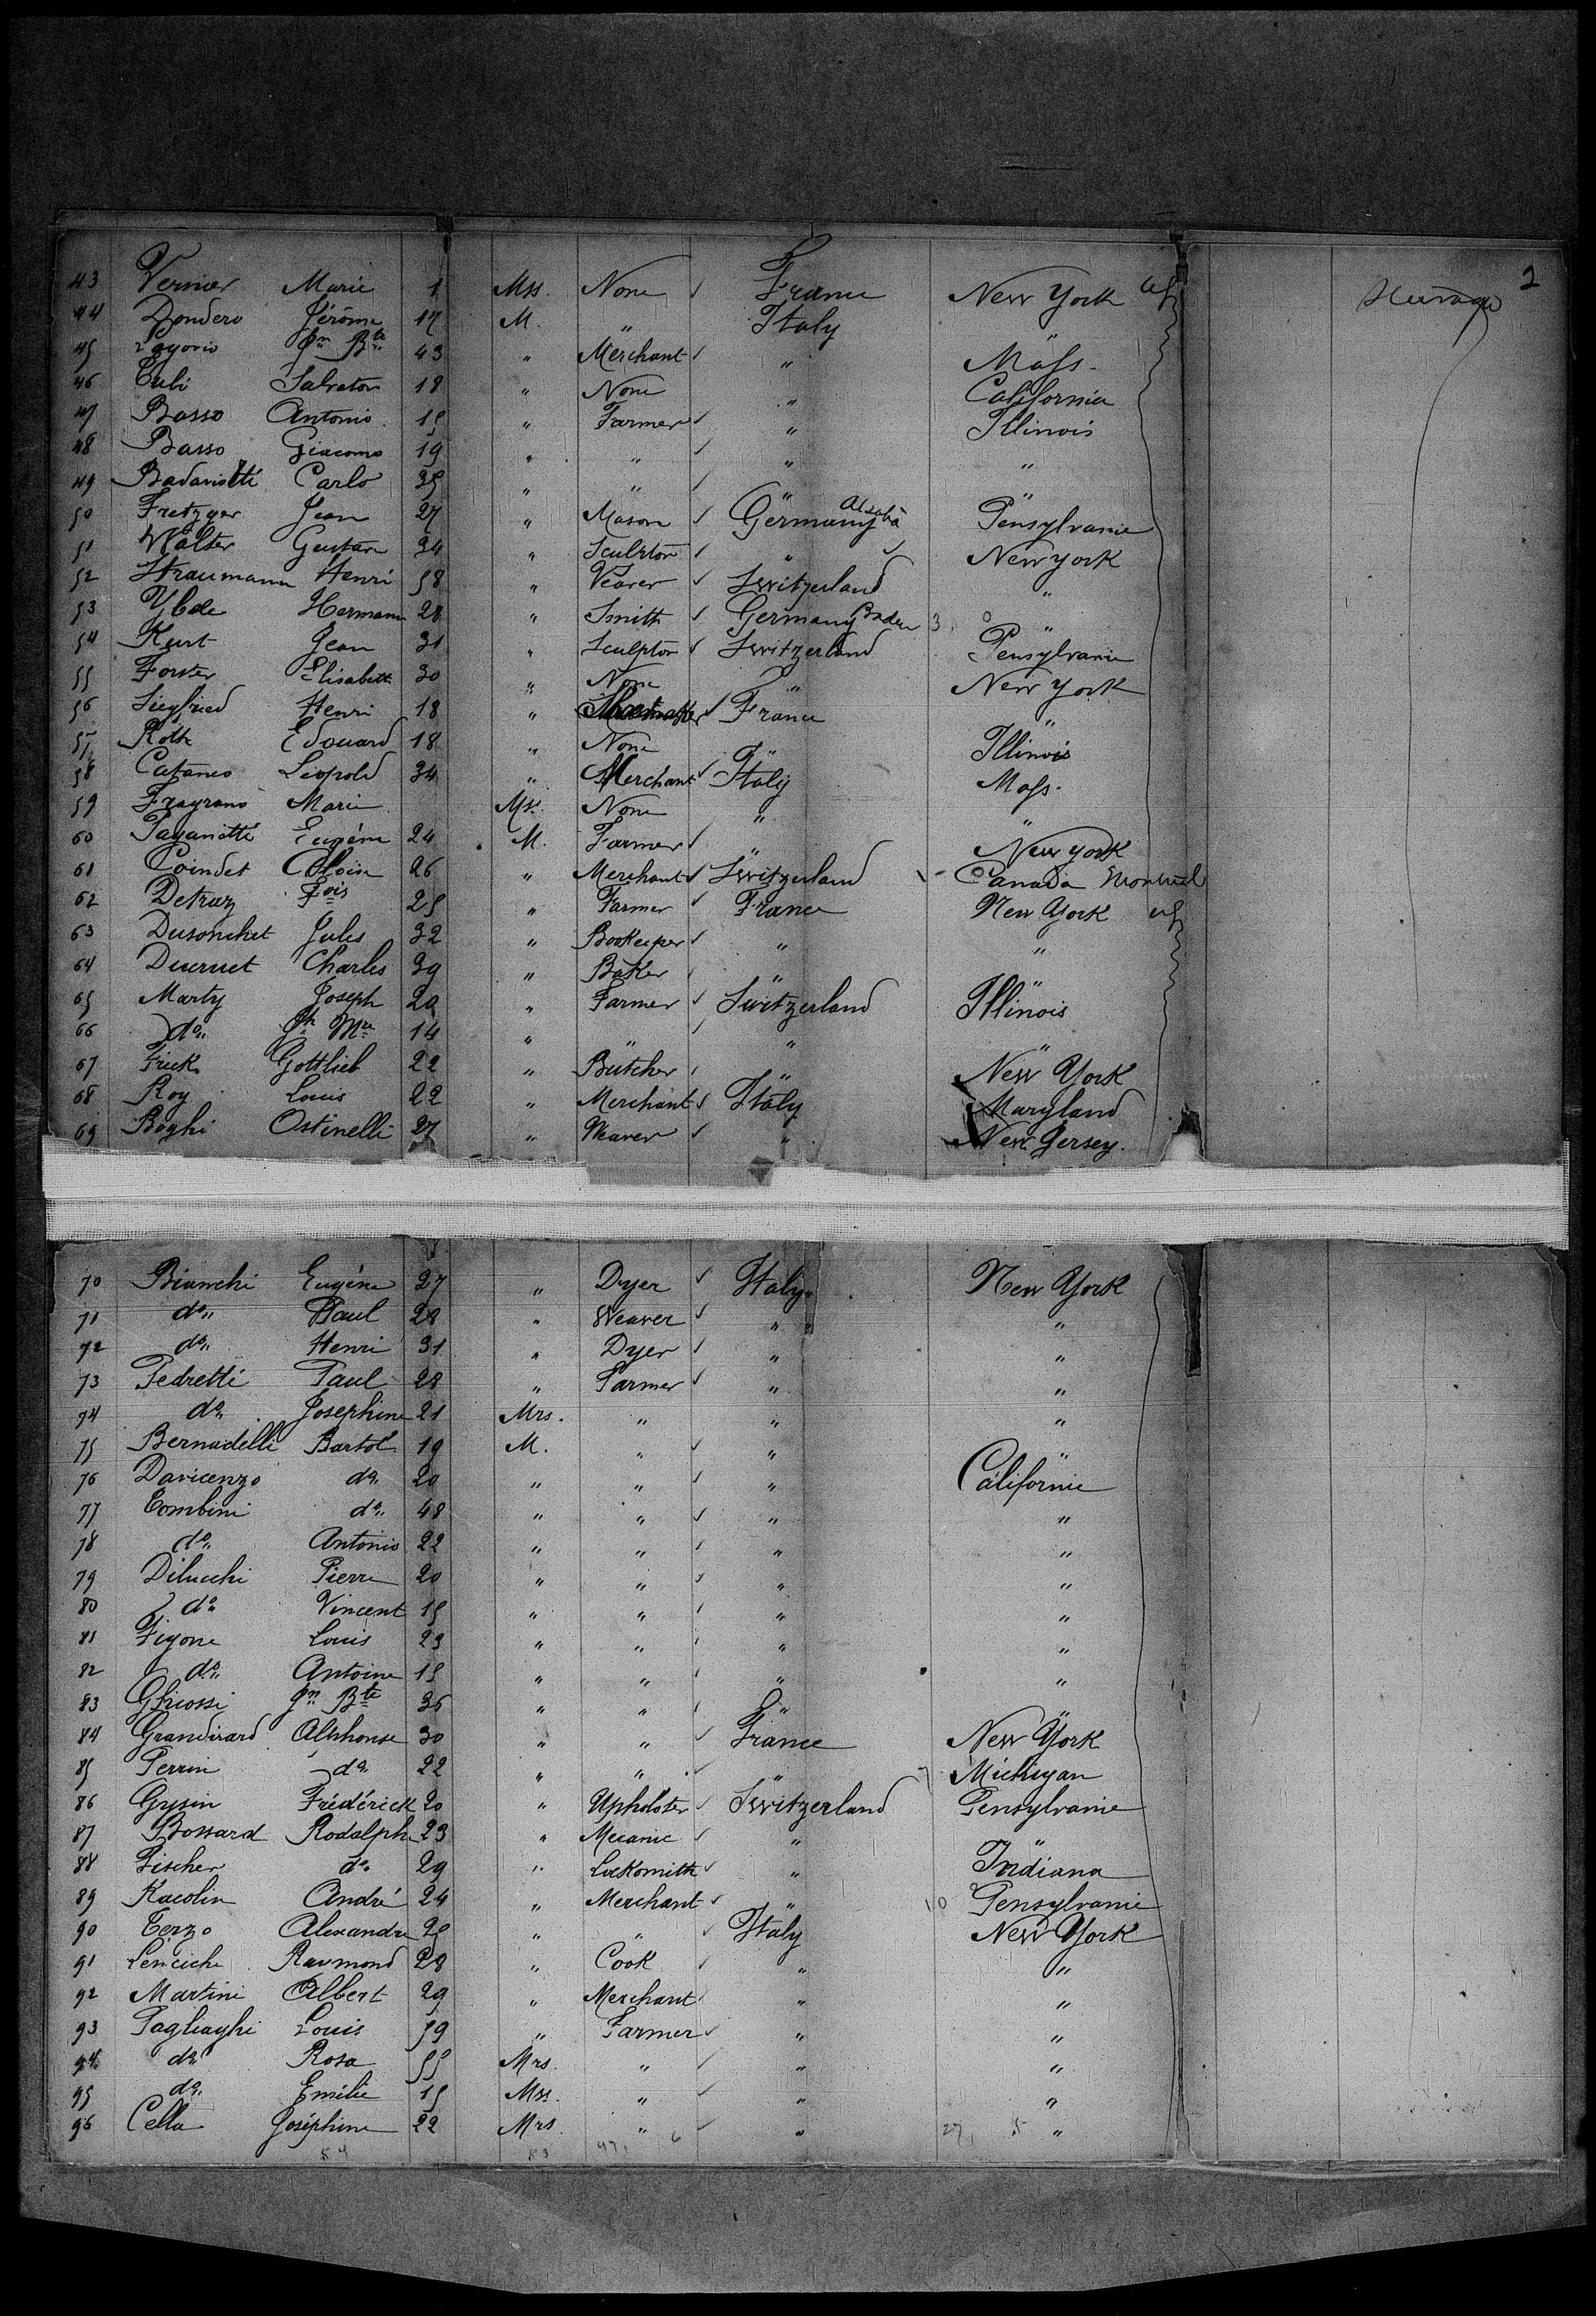 2
43 Vernier Marie 1 Mss. None ✓ France New York
44 Dondero Jérôme 17 M. " Italy "
45 Jn Bte 43 " Merchant ✓ " Mass.
46 Salvator 18 " None " California
47 Basso Antonio 15 " Farmer ✓ " Illinois
48 Basso Giacomo 19 " " ✓ " "
49 Badariotti Carlo 35 " " ✓ " "
50 Fretzger Jean 27 " Mason ✓ Germany Pensylvanie
51 Walter Gustave 34 " Sculptor ✓ " New York
52 Straumann Henri 58 " Vearer ✓ Switzerland "
53 Hermann 28 " Smith ✓ Germany Baden "
54 Kurt Jean 31 " Sculptor ✓ Switzerland Pensylvanie
55 Forster Elisabeth 30 " None " New York
56 Siegfried Henri 18 " ✓ France "
57 Roth Edouard 18 " None " Illinois
58 Cataneo Léopold 34 " Merchant ✓ Italy Mass.
59 Fragrano Marie Mss. None " "
60 Paganotti Eugène 24 M. Farmer ✓ " New York
61 Coindet Aloïse 26 " Merchant ✓ Switzerland Canada Montreal
62 Detraz Fois 25 " Farmer ✓ France New York
63 Dusonchet Jules 32 " Bookeeper ✓ " "
64 Ducruet Charles 39 " Baker " "
65 Marty Joseph 20 " Farmer ✓ Switzerland Illinois
66 do " 14 " " ✓ " "
67 Frick Gottlieb 22 " Butcher " New York
68 Roy Louis 22 " Merchant ✓ Italy Maryland
69 Boghi Ostinelli 27 " Weaver ✓ " New Jersey.
70 Bianchi Eugène 27 " Dyer ✓ Italy New York
71 do " Paul 28 " Weaver ✓ " "
72 do " Henri 31 " Dyer ✓ " "
73 Pedretti Paul 28 " Farmer ✓ " "
74 do " Josephine 21 Mrs. " " "
75 Bernadelli Bartol 19 M. " ✓ " "
76 Davicenzo do " 20 " " ✓ " Californie
77 Tombini do " 48 " " ✓ " "
78 do " Antonio 22 " " ✓ " "
79 Dilucchi Pierre 20 " " ✓ " "
80 do " Vincent 15 " " " "
81 Figone Louis 23 " " " "
82 do " Antoine 15 " " " "
83 Ghiossi Jn Bte 36 " " " "
84 Grandirard Alphonse 30 " " ✓ France New York
85 Perrin do " 22 " " ✓ " Michigan
86 Gysin Frédérick 20 " Upholster ✓ Switzerland Pensylvanie
87 Bossard Rodolph 23 " Mecanic ✓ " "
88 Fischer do " 29 " Locksmith ✓ " Indiana
89 Kacolin André 24 " Merchant ✓ " Pensylvanie
90 Terzo Alexandre " " ✓ Italy New York
91 Raymond 28 " Cook ✓ " "
92 Martini Albert 29 " Merchant " "
93 Pagliaghi Louis 59 " Farmer ✓ " "
94 do " Rosa 55 Mrs. " ✓ " "
95 do " Emélie 15 Mss. " ✓ " "
96 Cella Joséphine 22 Mrs. " ✓ " "